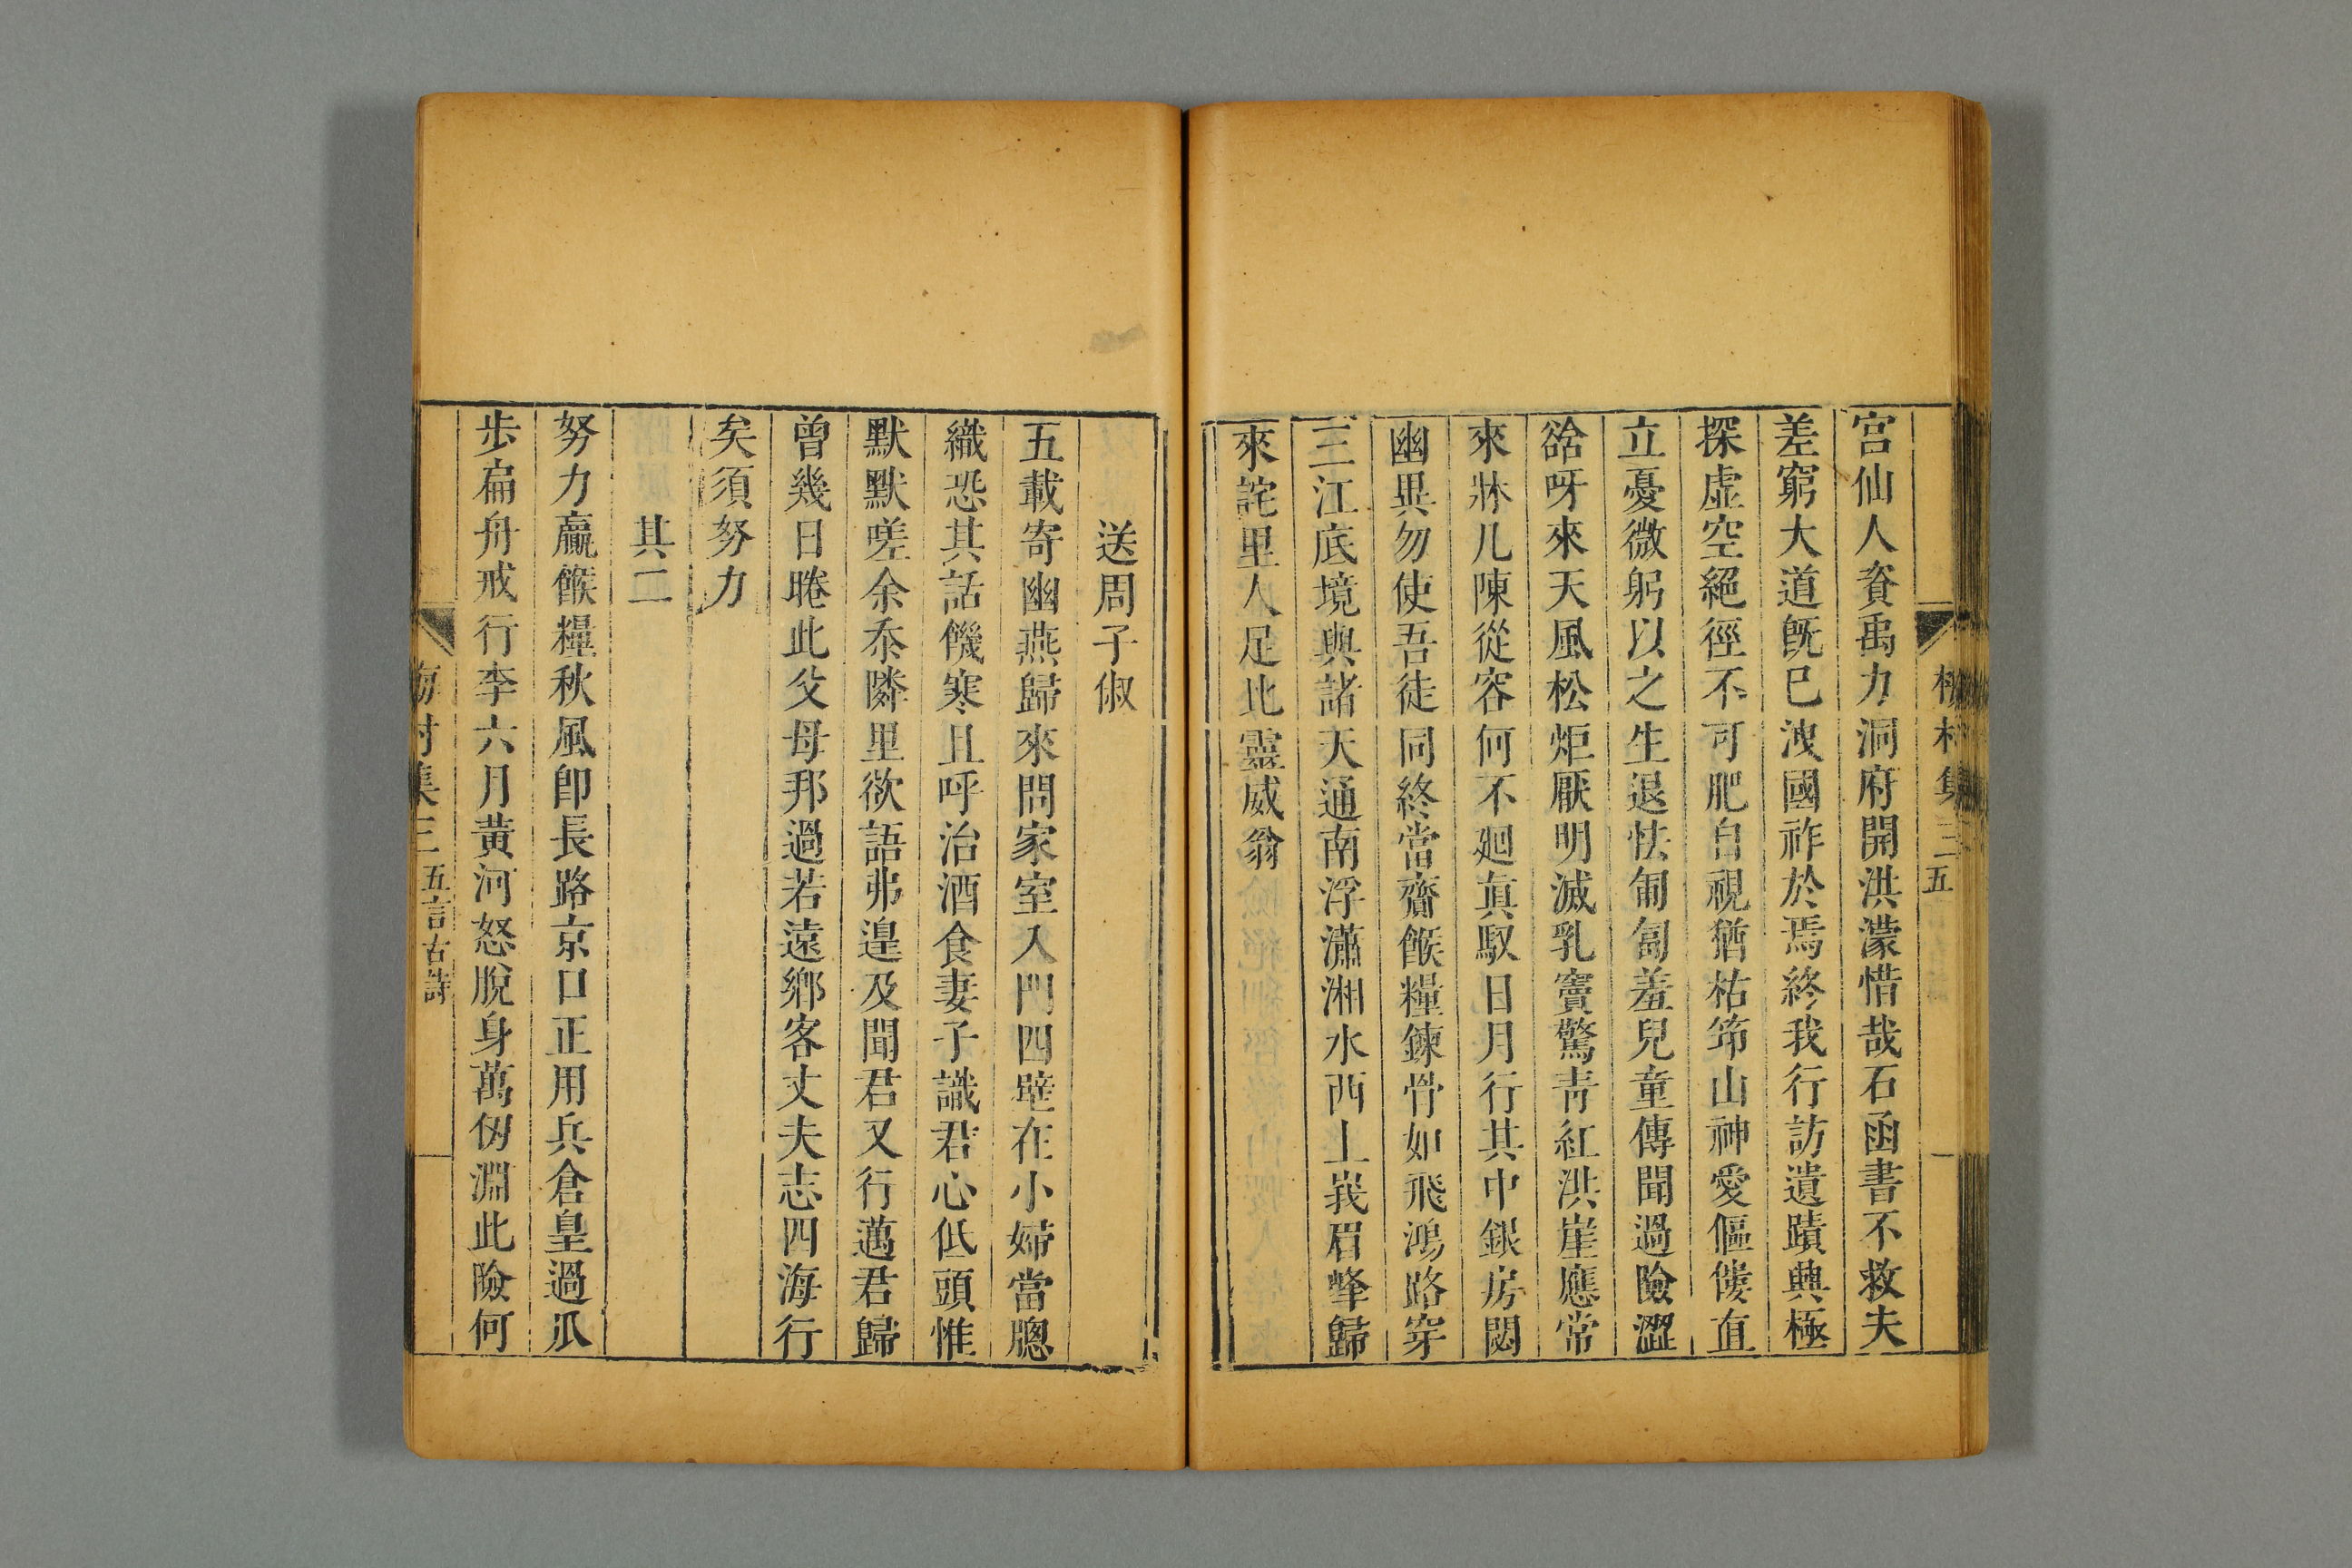 梅村集三 五
宮仙人資禹力洞府開洪濛惜哉石函書不救夫
差窮大道旣已洩國祚於焉終我行訪遺蹟興極
探虛空絕徑不可肥自視猶枯筇山神愛傴僂直
立憂微躬以之生退怯匍匐羞兒童傳聞過險澀
谽呀來天風松炬厭明滅乳竇驚靑紅洪崖應常
來牀几陳從容何不廻眞馭日月行其中銀房閟
幽異勿使吾徒同終當齎餱糧鍊骨如飛鴻路穿
三江底境與諸天通南浮瀟湘水西上峩眉峰歸
來詫里人足比靈威翁
送周子俶
五載寄幽燕歸來問家室入門四壁在小婦當牎
織恐其話饑寒且呼治酒食妻子識君心低頭惟
默默嗟余忝隣里欲語弗遑及聞君又行邁君歸
曾幾日睠此父母邦過若遠鄉客丈夫志四海行
矣須努力
其二
努力贏餱糧秋風卽長路京口正用兵倉皇過瓜
步扁舟戒行李六月黃河怒脫身萬仞淵此險何
梅村集三 五言古詩